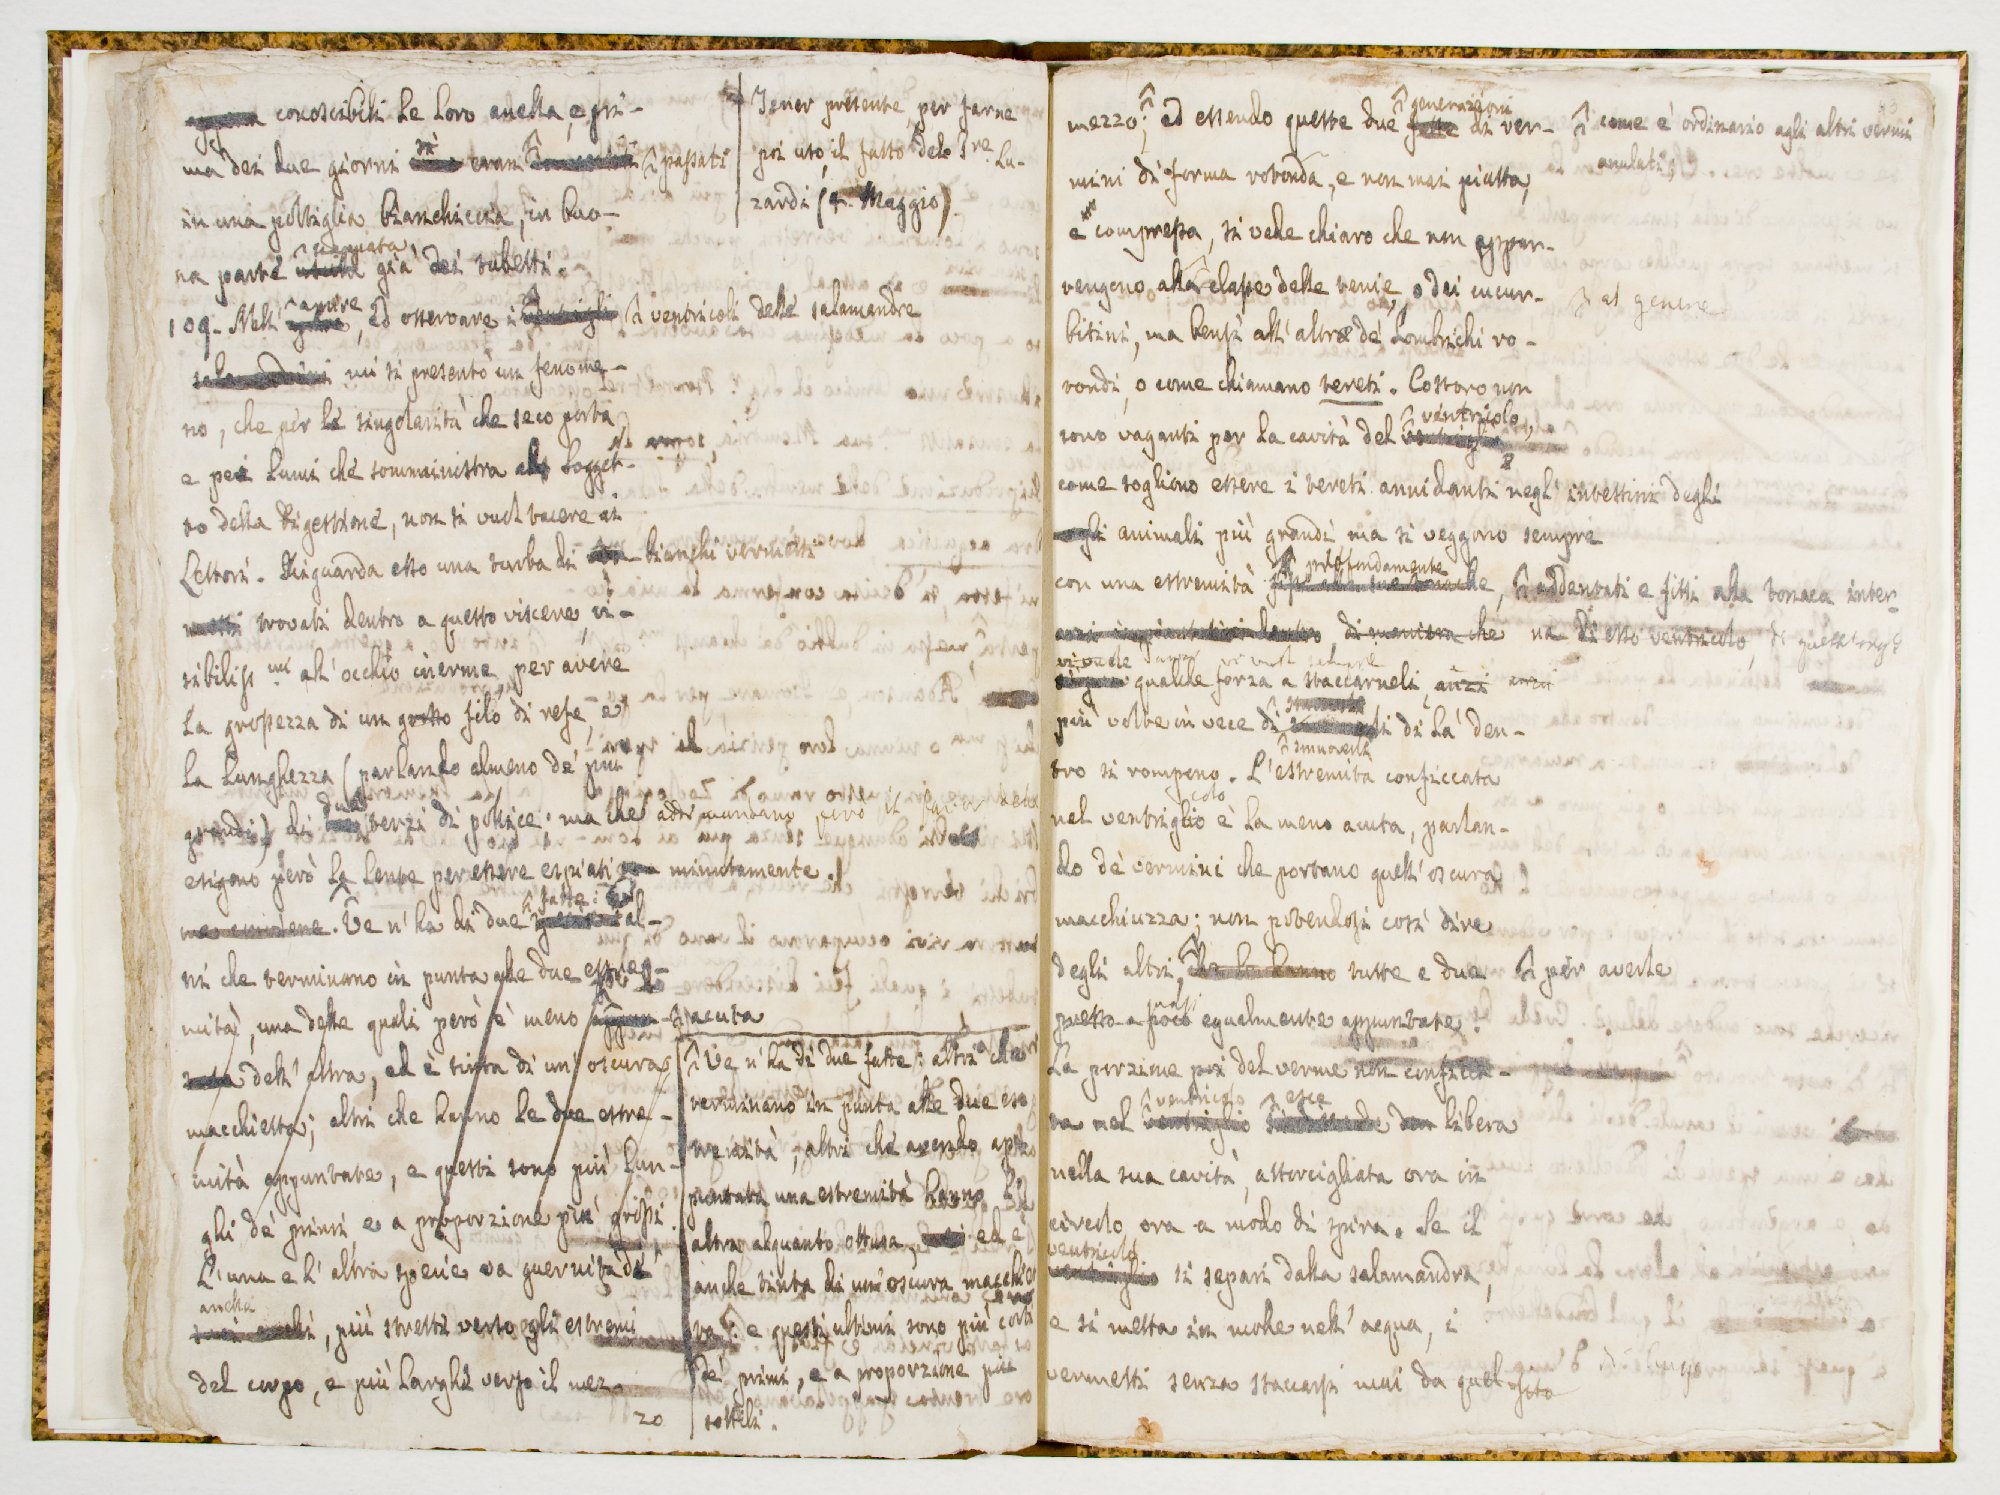 conoscibili le loro anella, e pri-
ma dei due giorni si eran passati
in una poltiglia bianchiccia, in buo-
na parte già dei tubetti.
Tener presente, per farne
poi uso, il fatto delo Sre. Lu-
zardi (4. Maggio).
109. Nell' aprire, ed osservare i ventricoli delle salamandre
mi si presentò un fenome-
no, che per le singolarità che seco porta,
e pei lumi che somministra al sogget-
to della digestione, non si vuol tacere ai
Lettori. Risguarda esso una turba di bianchi vermetti
trovati dentro a questo viscere, vi-
sibiliss.mi all' occhio inerme, per avere
la grossezza di un grosso filo di refe, e
la lunghezza (parlando almeno de' più
grandi) di due terzi di pollice: ma che addimandano però
esigono però la lente per essere espiati minutamente.
Ve n' ha di due fatte: al-
tri che terminano in punta alle due estre-
mità, una delle quali però è meno acuta
dell' altra, ed è tinta di un' oscura
macchietta; altri che hanno le due estre-
mità appuntate, e questi sono più lun-
ghi de' primi, e a proporzione più grossi.
L' una e l' altra spezie va guernita di
anella, più stretti verso gli estremi
del corpo, e più larghi verso il mez-
20
Ve n' ha di due fatte: altri che
terminano in punta alle due es-
tremità, altri che avendo ap-
puntata una estremità hanno l'
altra alquanto ottusa, ed è
anche tinta di un' oscura macchiet
ta: e questi ultimi sono più corti
de' primi, e a proporzione più
sottili.
mezzo; come è ordinario agli altri vermi
anulati; ed essendo queste due generazioni di ver-
mini di forma rotonda, e non mai piatta,
e compressa, si vede chiaro che non appar-
tengono alla classe delle tenie, o dei cucur-
al genere
bitini, ma bensì all' altra de' lombrichi ro-
tondi, o come chiamano tereti. Costoro non
sono vaganti per la cavità del ventricolo,
come sogliono essere i tereti annidanti negl' intestini degli
animali più grandi ma si veggono sempre
con una estremità profondamente addentati e fitti alla tonaca inter-
na di esso ventricolo,
di maniera che
vi vuole qualche forza a staccarneli anzi
più volte in vece di di là den-
tro si rompono. L' estremità conficcata
nel ventriglio è la meno acuta, parlan-
do de' vermini che portano quell' oscura
macchiuzza; non potendosi così dire
degli altri, per averle tutte e due
presso a poco quasi egualmente appuntate.
La porzione poi del verme non conficca-
ta nel ventricolo esce libera
nella sua cavità, attorcigliata ora in
circolo ora a modo di spira. Se il
ventricolo si separi dalla salamandra,
e si metta in molle nell' acqua, i
vermetti senza staccarsi mai da quel sito